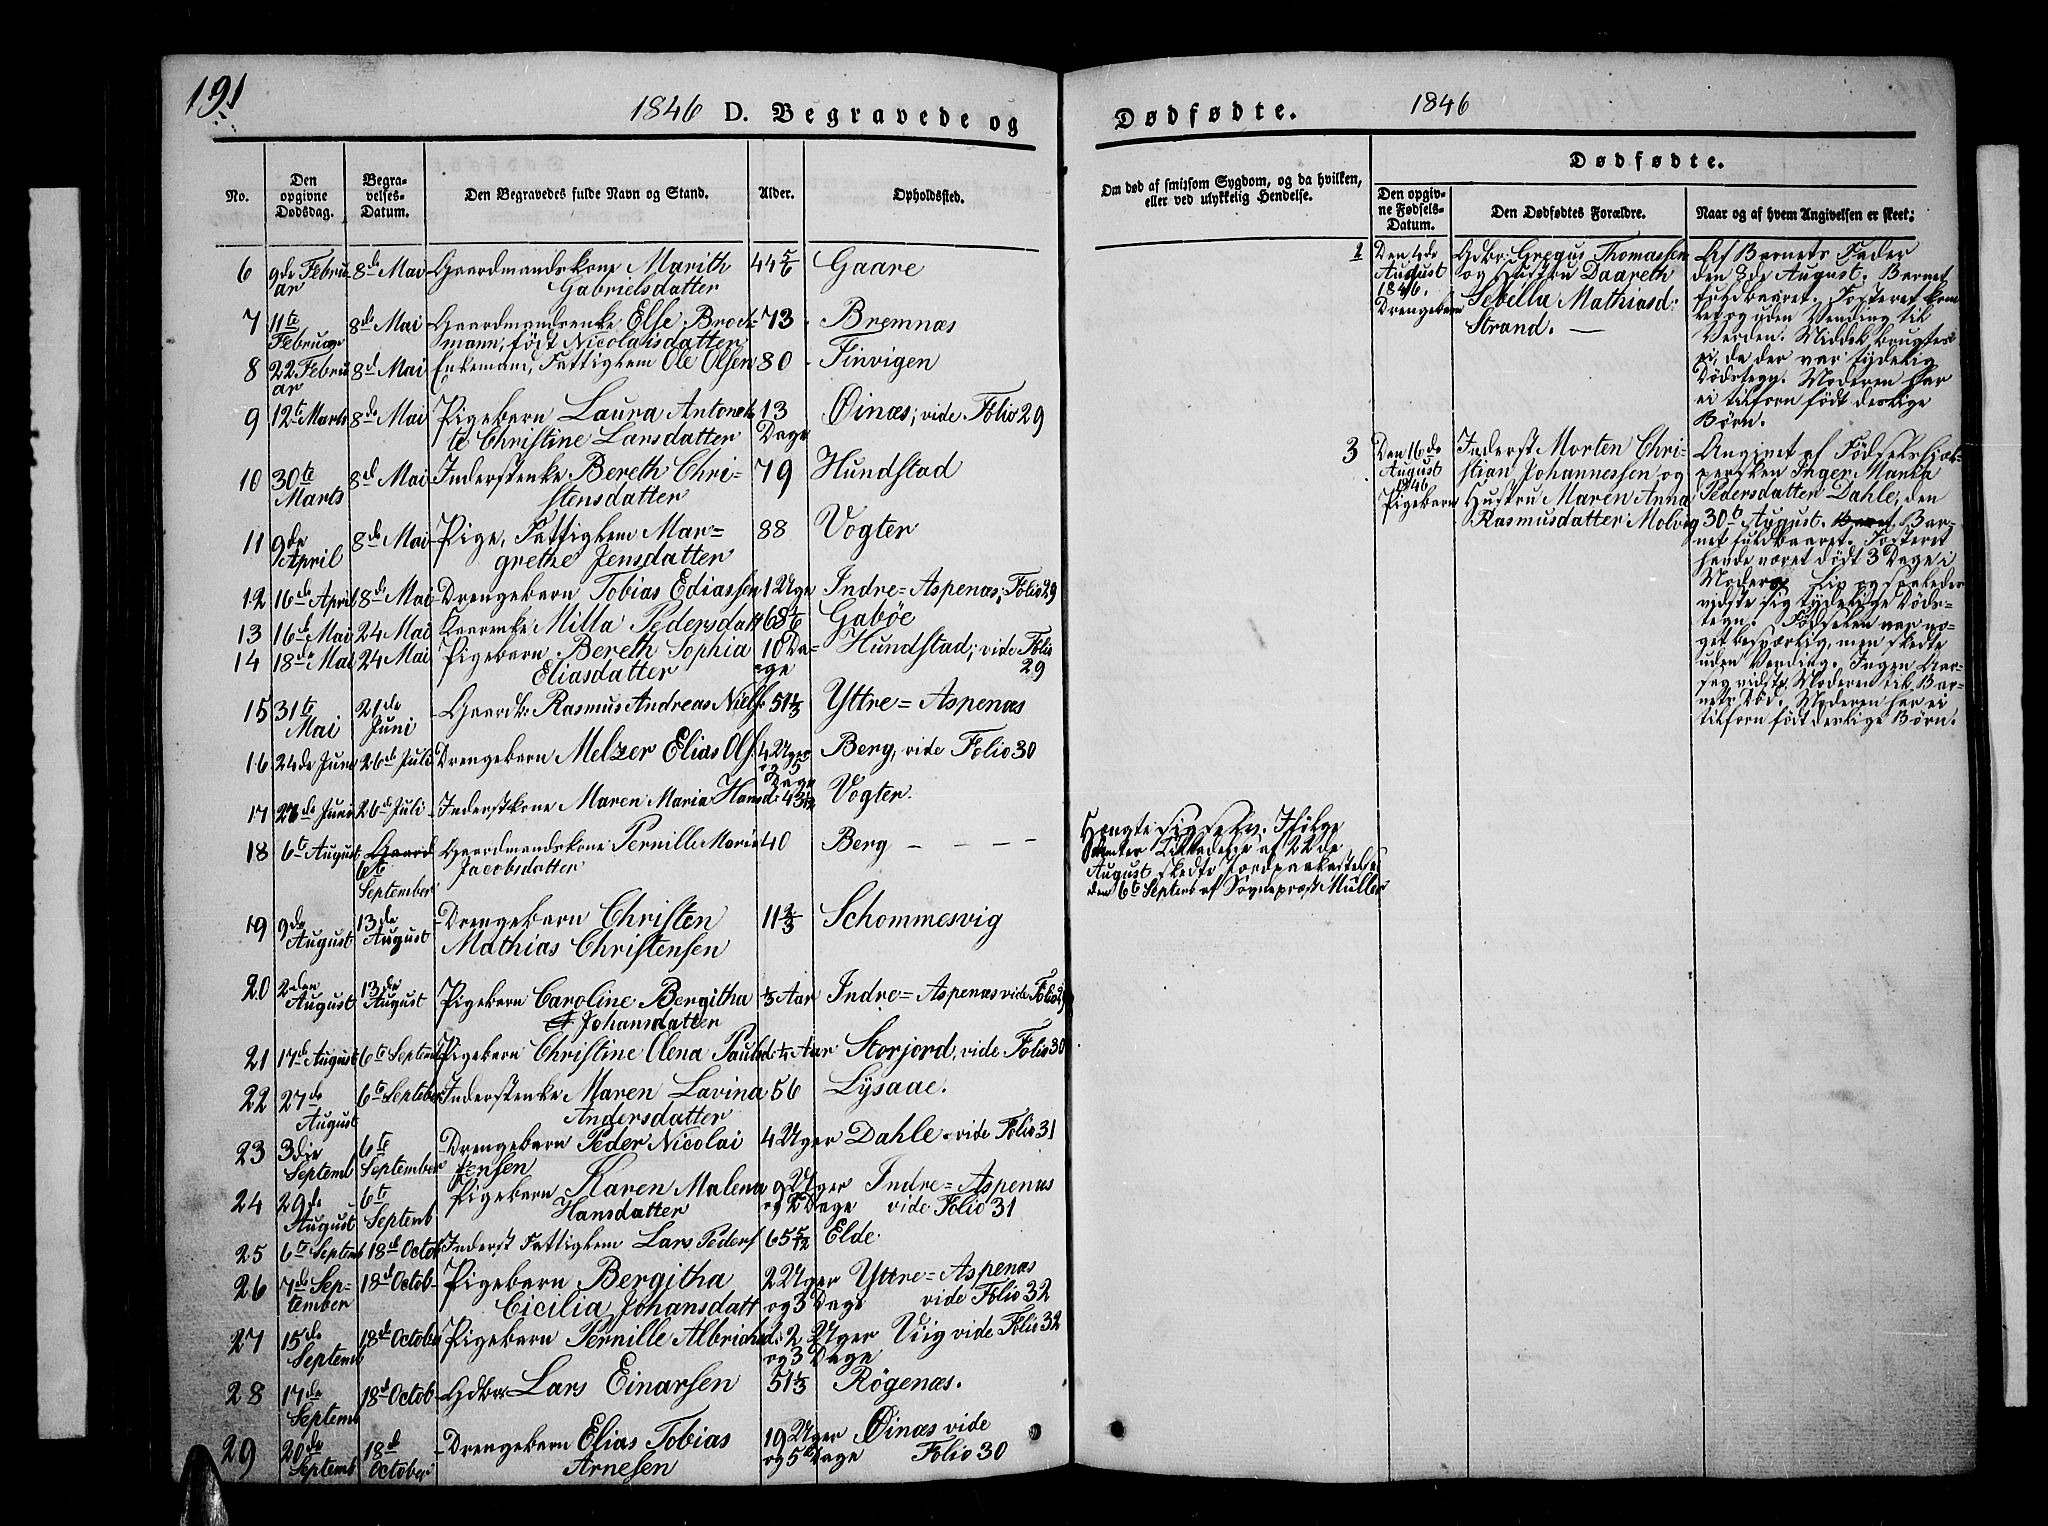 191
1846 D. Begravede og
No.
Den opgivne Dødsdag.
Begravelses-Datum.
Den Begravedes fulde Navn og Stand.
Alder.
Opholdssted.
6 9de Februar 8de Mai Gaardmandskone Marith Gabrielsdatter 44 5/6 Gaare
7 11te Februar 8de Mai Gaardmandsenke Else Brockmann, født Nicolaisdatter 73 Bremnæs
8 22 Februar 8de Mai Enkemand, Fattiglem Ole Olsen 80 Finvigen
9 12te Marts 8de Mai Pigebarn Laura Antonette Christine Larsdatter 13 Dage Øinæs, vide Folio 29
10 30te Marts 8de Mai Inderstenke Bereth Christensdatter 79 Hundstad
11 9de April 8de Mai Pige, Fattiglem Margrethe Jensdatter 88 Vogter
12 16de April 8de Mai Drengebarn Tobias Ediassen 1 Uge Indre=Aspenæs, Folio 29
13 16de Mai 24 Mai Kaarenke Milla Pedersdatt 68 1/6 Gabøe
14 18de Mai 24 Mai Pigebarn Bereth Sophia Eliasdatter 10 Dage Hundstad, vide Folio 29
15 31te Mai 21de Juni Gaardk: Rasmus Andreas Niels: 51 1/3 Yttre=Aspenæs
16 24de Juni 26de Juli Drengebarn Melzer Elias Ols: 4 Uger og 5 Dage Berg, vide Folio 30
17 27de Juni 26de Juli Inderstkone Maren Maria Hansd: 43 Vogter
18 6te August 6te September Gaardmandskone Pernille Maria Jacobsdatter 40 Berg — — — —
19 9de August 13de August Drengebarn Christen Mathias Christensen 11 2/3 Schommesvig
20 2den August 13de August Pigebarn Caroline Bergitha Johansdatter 1/3 Aar Indre=Aspenæs vide Folio 29
21 17de August 6te Septemb Pigebarn Christine Olena Paulsd: Aar Storjord, vide Folio 30
22 27de August 6te Septeber Inderstenke Maren Lavina Andersdatter 56 Lysaae.
23 3die Septemb 6te September Drengebarn Peder Nicolai Jensen 4 Uger Dahle vide Folio 31
24 29de August 6te Septemb Pigebarn Karen Malena Hansdatter 9 Uger og 2 Dage Indre=Aspenæs vide Folio 31
25 6te Septemb 18de Octob Inderst Fattiglem Lars Peders 65 5/12 Elde
26 7de September 18de Octob Pigebarn Bergitha Cicilia Johansdatt 2 Uger og 3 Dage Yttre=Aspenæs vide Folio 32
27 15de Septemb 18de October Pigebarn Pernille Albrichsd: 2 Uger og 3 Dage Viig vide Folio 32
28 17de Septemb 18de Octob Gdbr: Lars Einarsen 51 1/3 Røgenæs.
29 20de Septemb 18de October Drengebarn Elias Tobias Arnesen 19 Uger og 5 Dage Øinæs vide Folio 30
Dødfødte. 1846
Om død af smitsom Sygdom, og da hvilken, eller ved ulykkelig Hendelse.
Dødfødte.
Den opgivne Fødsels-Datum.
Den Dødfødtes Forældre.
Naar og af hvem Angivelsen er skeet;
Den 4de August 1846. Drengebarn
Gdbr: Gregus Thomassen
og Hustru Daareth
Sebella Mathiasd:
Strand. —
Af Barnets Fader
den 8de August. Barnet
fuldbaaret. Fosteret kom
let og uden Vending til
Verden. Middel brugtes
ei, da der var tydelig
Dødstegn. Moderen har
ei tilforn født deslige
Børn.
3 Den 16de August 1846 Pigebarn
Inderst Morten Christian
Johannessen og
Hustru Maren Anna
Rasmusdatter Molvig
Angivet af Fødselshjælpersken
Inger Maria
Pedersdatter Dahle, den
30te August. Barnet
fuldbaaret. Fosteret
havde været dødt 3 Dage i
Moders Liv og saaledes
vidste sig tydelige Dødstegn.
Fødselen var noget
besværlig, men skedte
uden Vending. Ingen Aarsag
vidste Moderen til Barnets
Død. Moderen har ei
tilforn født deslige Børn.
Hængte sig selv. Ifølge
Tilladelse af 22de
August skedte Jordpaakastelse
den 6te Septemb af Sogneprest Müller